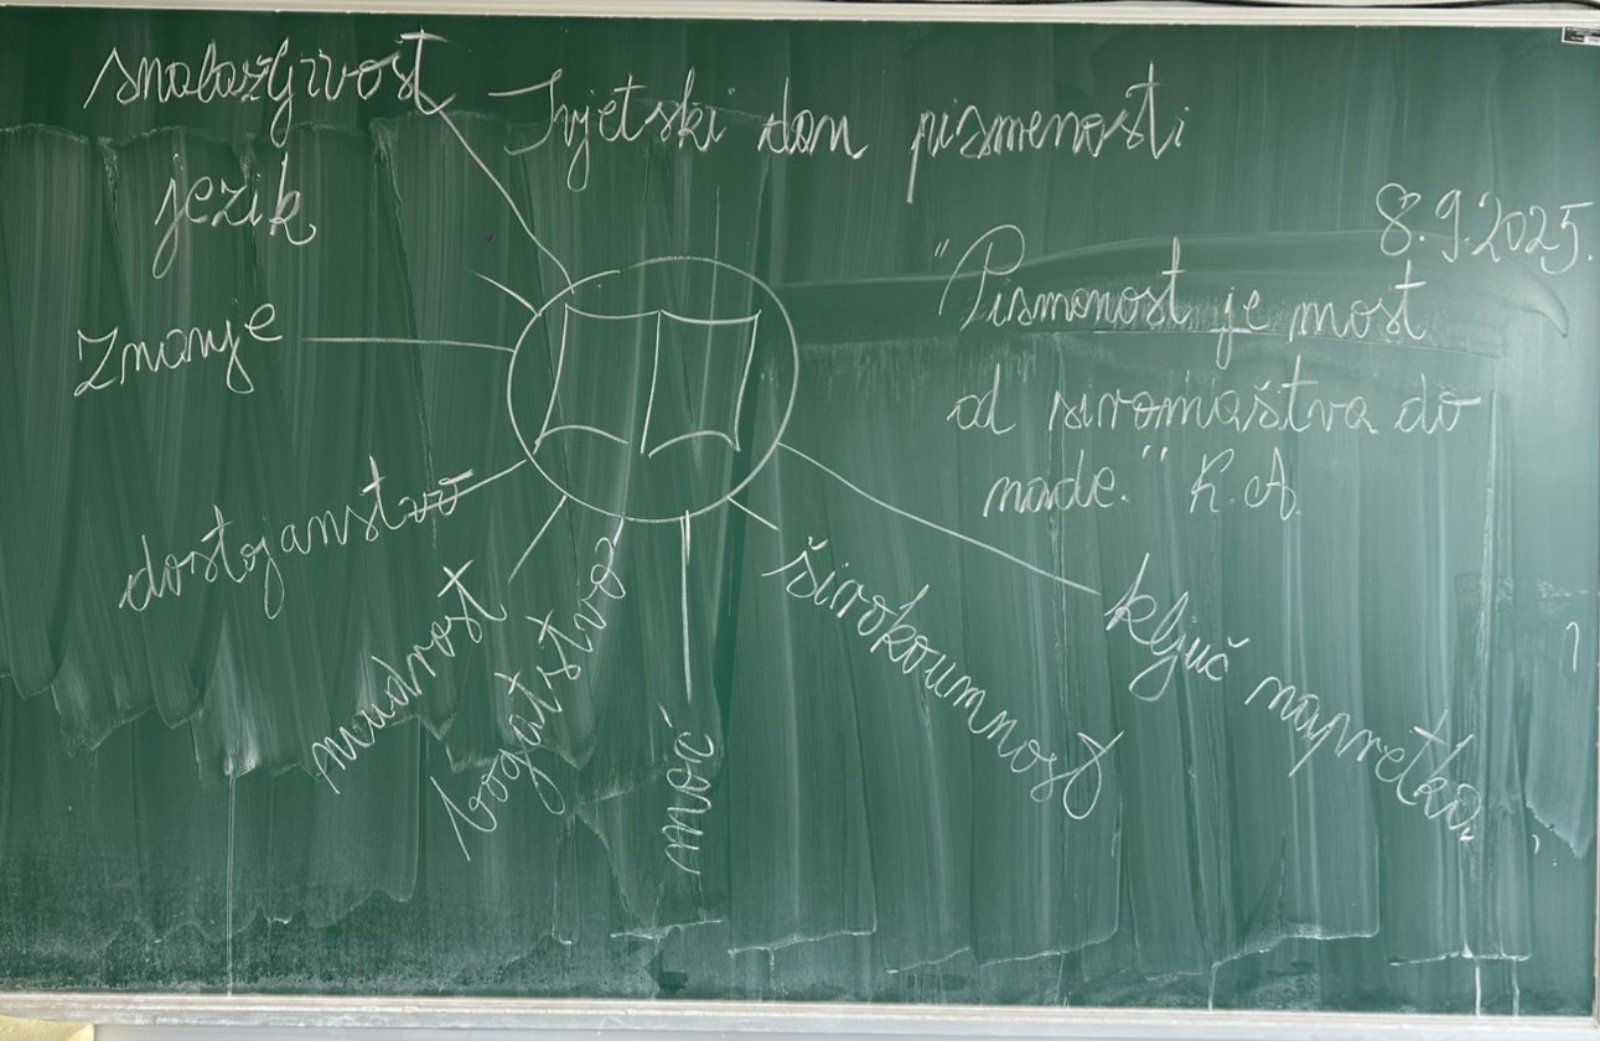 snalažljivost
Svjetski dan pismenosti
jezik
8.9.2025.
"Pismenost je most
od siromaštva do
nade." K.A.
Znanje
dostojanstvo
mudrost
bogatstvo
moć
širokoumnost
ključ napretka